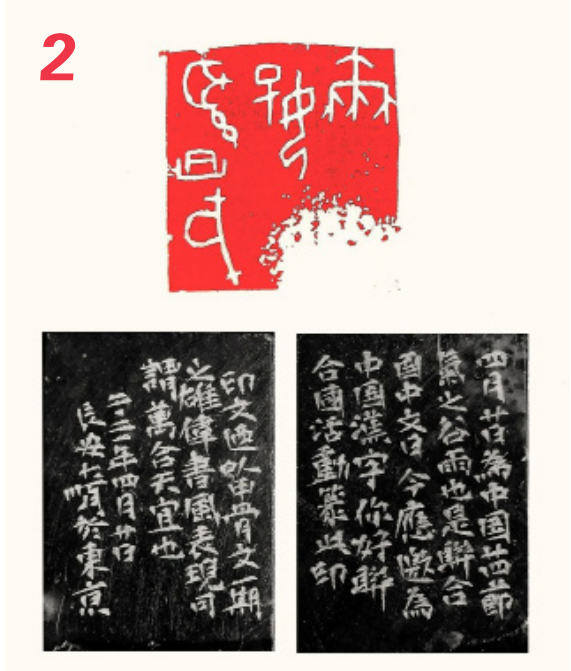 2
四月廿日為中国廿四節
氣之谷雨也是聯合
國中文日今應邀為
中国漢字你好聯
合國活動篆此印
印文適以甲骨文一期
之雄偉書風表現可
謂萬合天宜也
年四月廿日
長安於東京